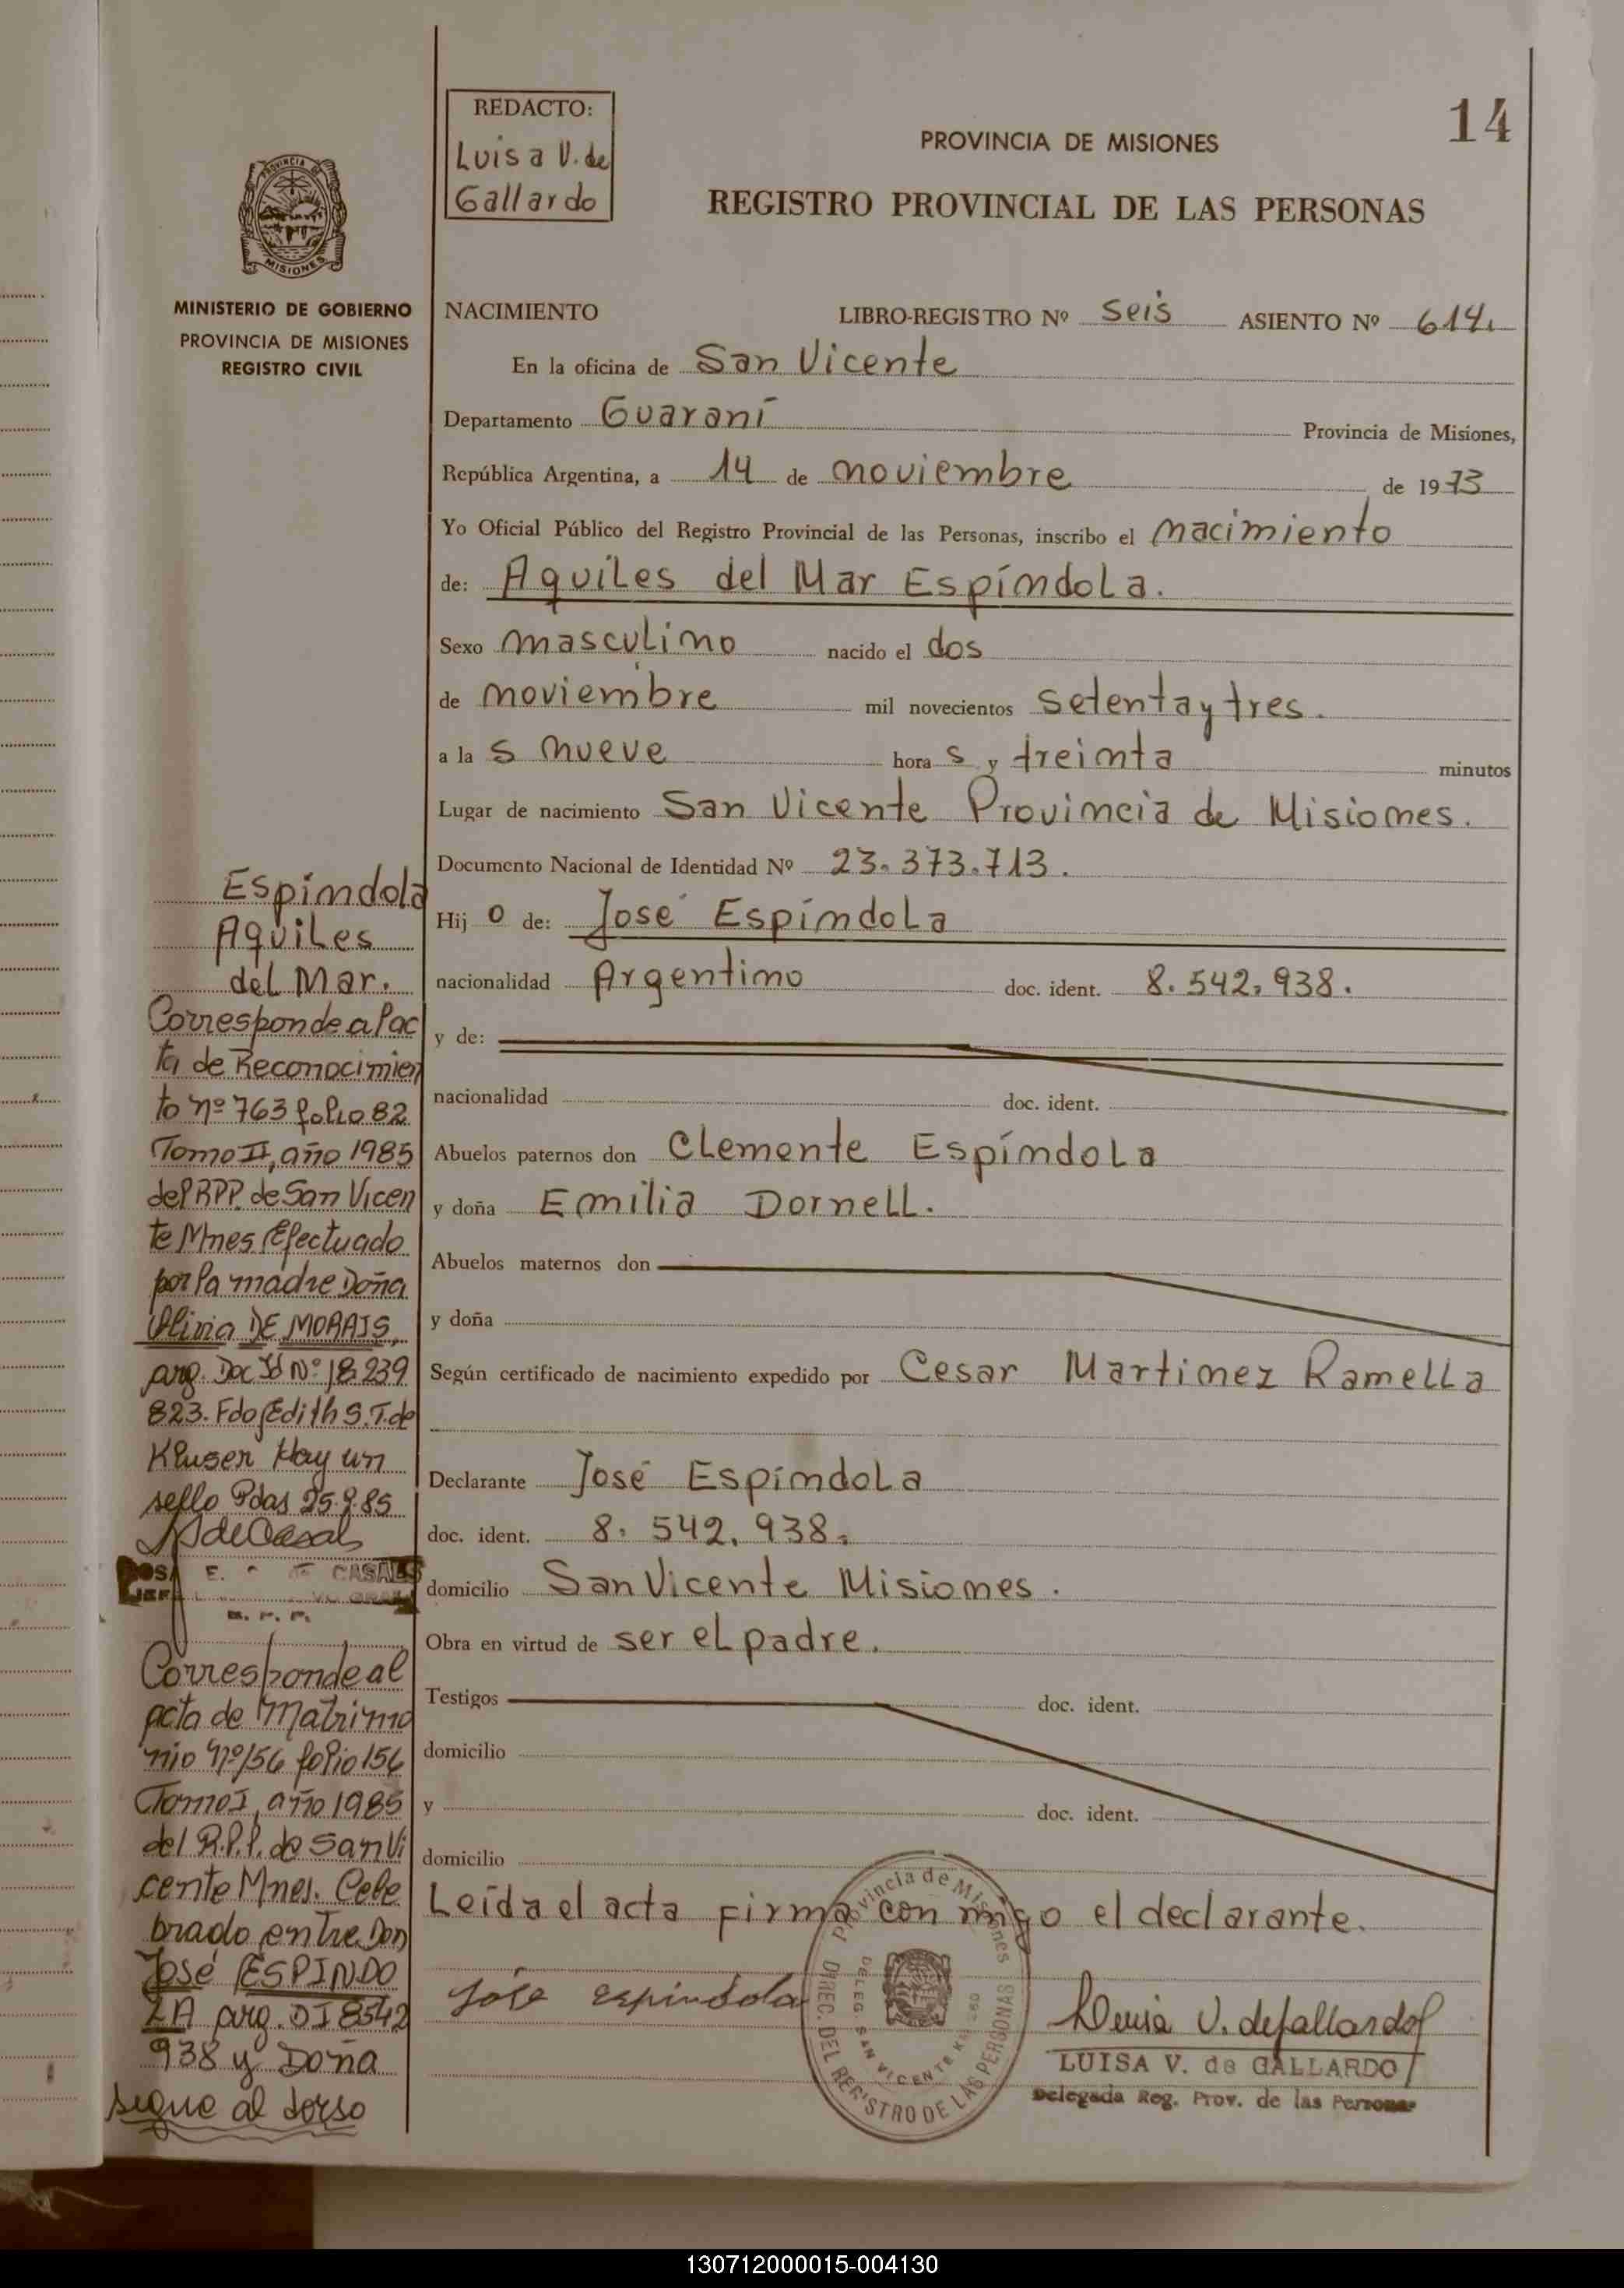 REDACTO:
Luisa V. de
Gallardo
14
PROVINCIA DE MISIONES
REGISTRO PROVINCIAL DE LAS PERSONAS
PROVINCIA DE
MISIONES
MINISTERIO DE GOBIERNO
PROVINCIA DE MISIONES
REGISTRO CIVIL
NACIMIENTO LIBRO-REGISTRO Nº seis ASIENTO Nº 614.
En la oficina de San Vicente
Departamento Guaraní Provincia de Misiones,
República Argentina, a 14 de noviembre de 1973
Yo Oficial Público del Registro Provincial de las Personas, inscribo el nacimiento
de: Aquiles del Mar Espíndola.
Sexo masculino nacido el dos
de noviembre mil novecientos setenta y tres.
a la s nueve hora s y treinta minutos
Lugar de nacimiento San Vicente Provincia de Misiones.
Documento Nacional de Identidad Nº 23.373.713.
Hij o de: José Espíndola
nacionalidad Argentino doc. ident. 8.542.938.
y de:
nacionalidad doc. ident.
Abuelos paternos don Clemente Espíndola
y doña Emilia Dornell.
Abuelos maternos don
y doña
Según certificado de nacimiento expedido por Cesar Martinez Ramella
Declarante José Espíndola
doc. ident. 8.542.938.
domicilio San Vicente Misiones.
Obra en virtud de ser el padre.
Testigos doc. ident.
domicilio
y doc. ident.
domicilio
Leída el acta firma con migo el declarante.
José espindola
Luisa V. de Gallardo
LUISA V. de GALLARDO
Delegada Reg. Prov. de las Personas
Provincia de Misiones
DIREC. DEL REGISTRO DE LAS PERSONAS
DELEG. SAN VICENTE
Espíndola
Aquiles
del Mar.
Corresponde al ac
ta de Reconocimien
to nº 763 folio 82
Tomo II, año 1985
del RPP. de San Vicen
te Mnes Efectuado
por la madre Doña
Olivia DE MORAIS,
arg. Doc Id Nº 18.239
823. Fdo Edith S. T. de
Kluser Hay un
sello Pdas 25.9.85
CASALS
Corresponde al
acta de Matrimo
nio nº 156 folio 156
Tomo I, año 1985
del R.P.P. de San Vi
cente Mnes. Cele
brado entre Don
José ESPINDO
LA arg. DI 8542
938 y Doña
sigue al dorso
130712000015-004130